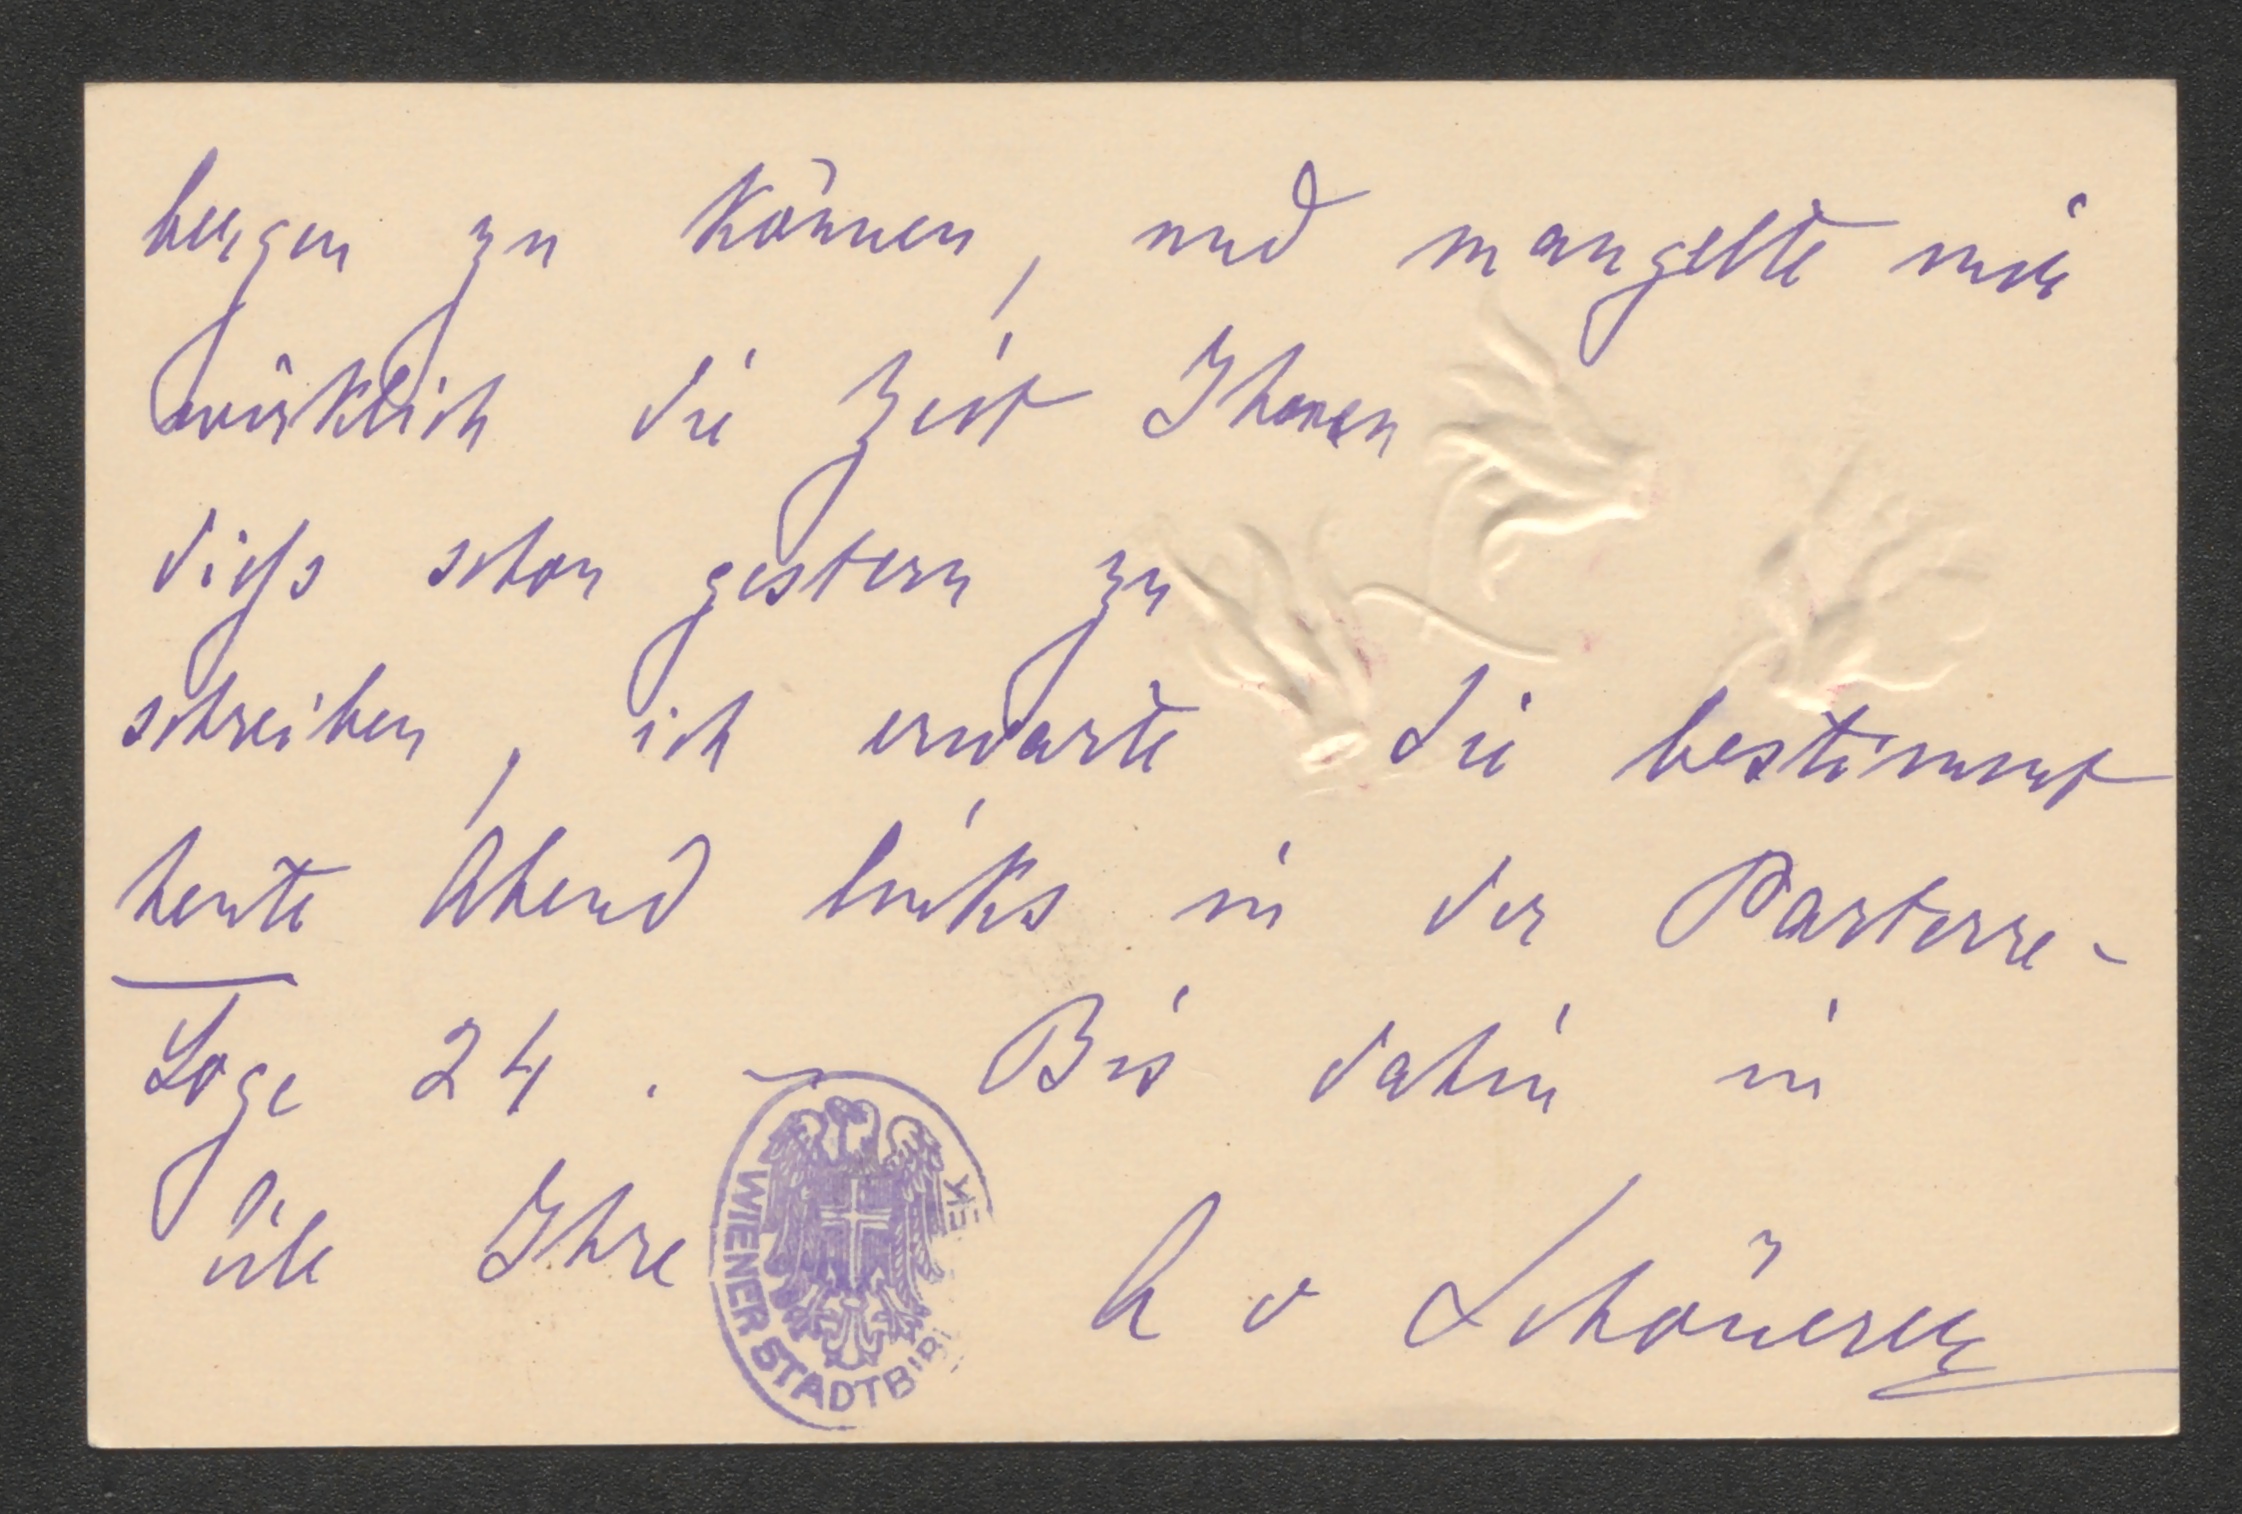 bergen zu können, und mangelte mir
wirklich die Zeit Ihnen
diess schon gestern zu
schreiben, ich erwarte Sie bestimmt
heute Abend links in der Parterre-
Loge 24. – Bis dahin in
Eile Ihre
WIENER STADTBIBL
EK
v Schönerer